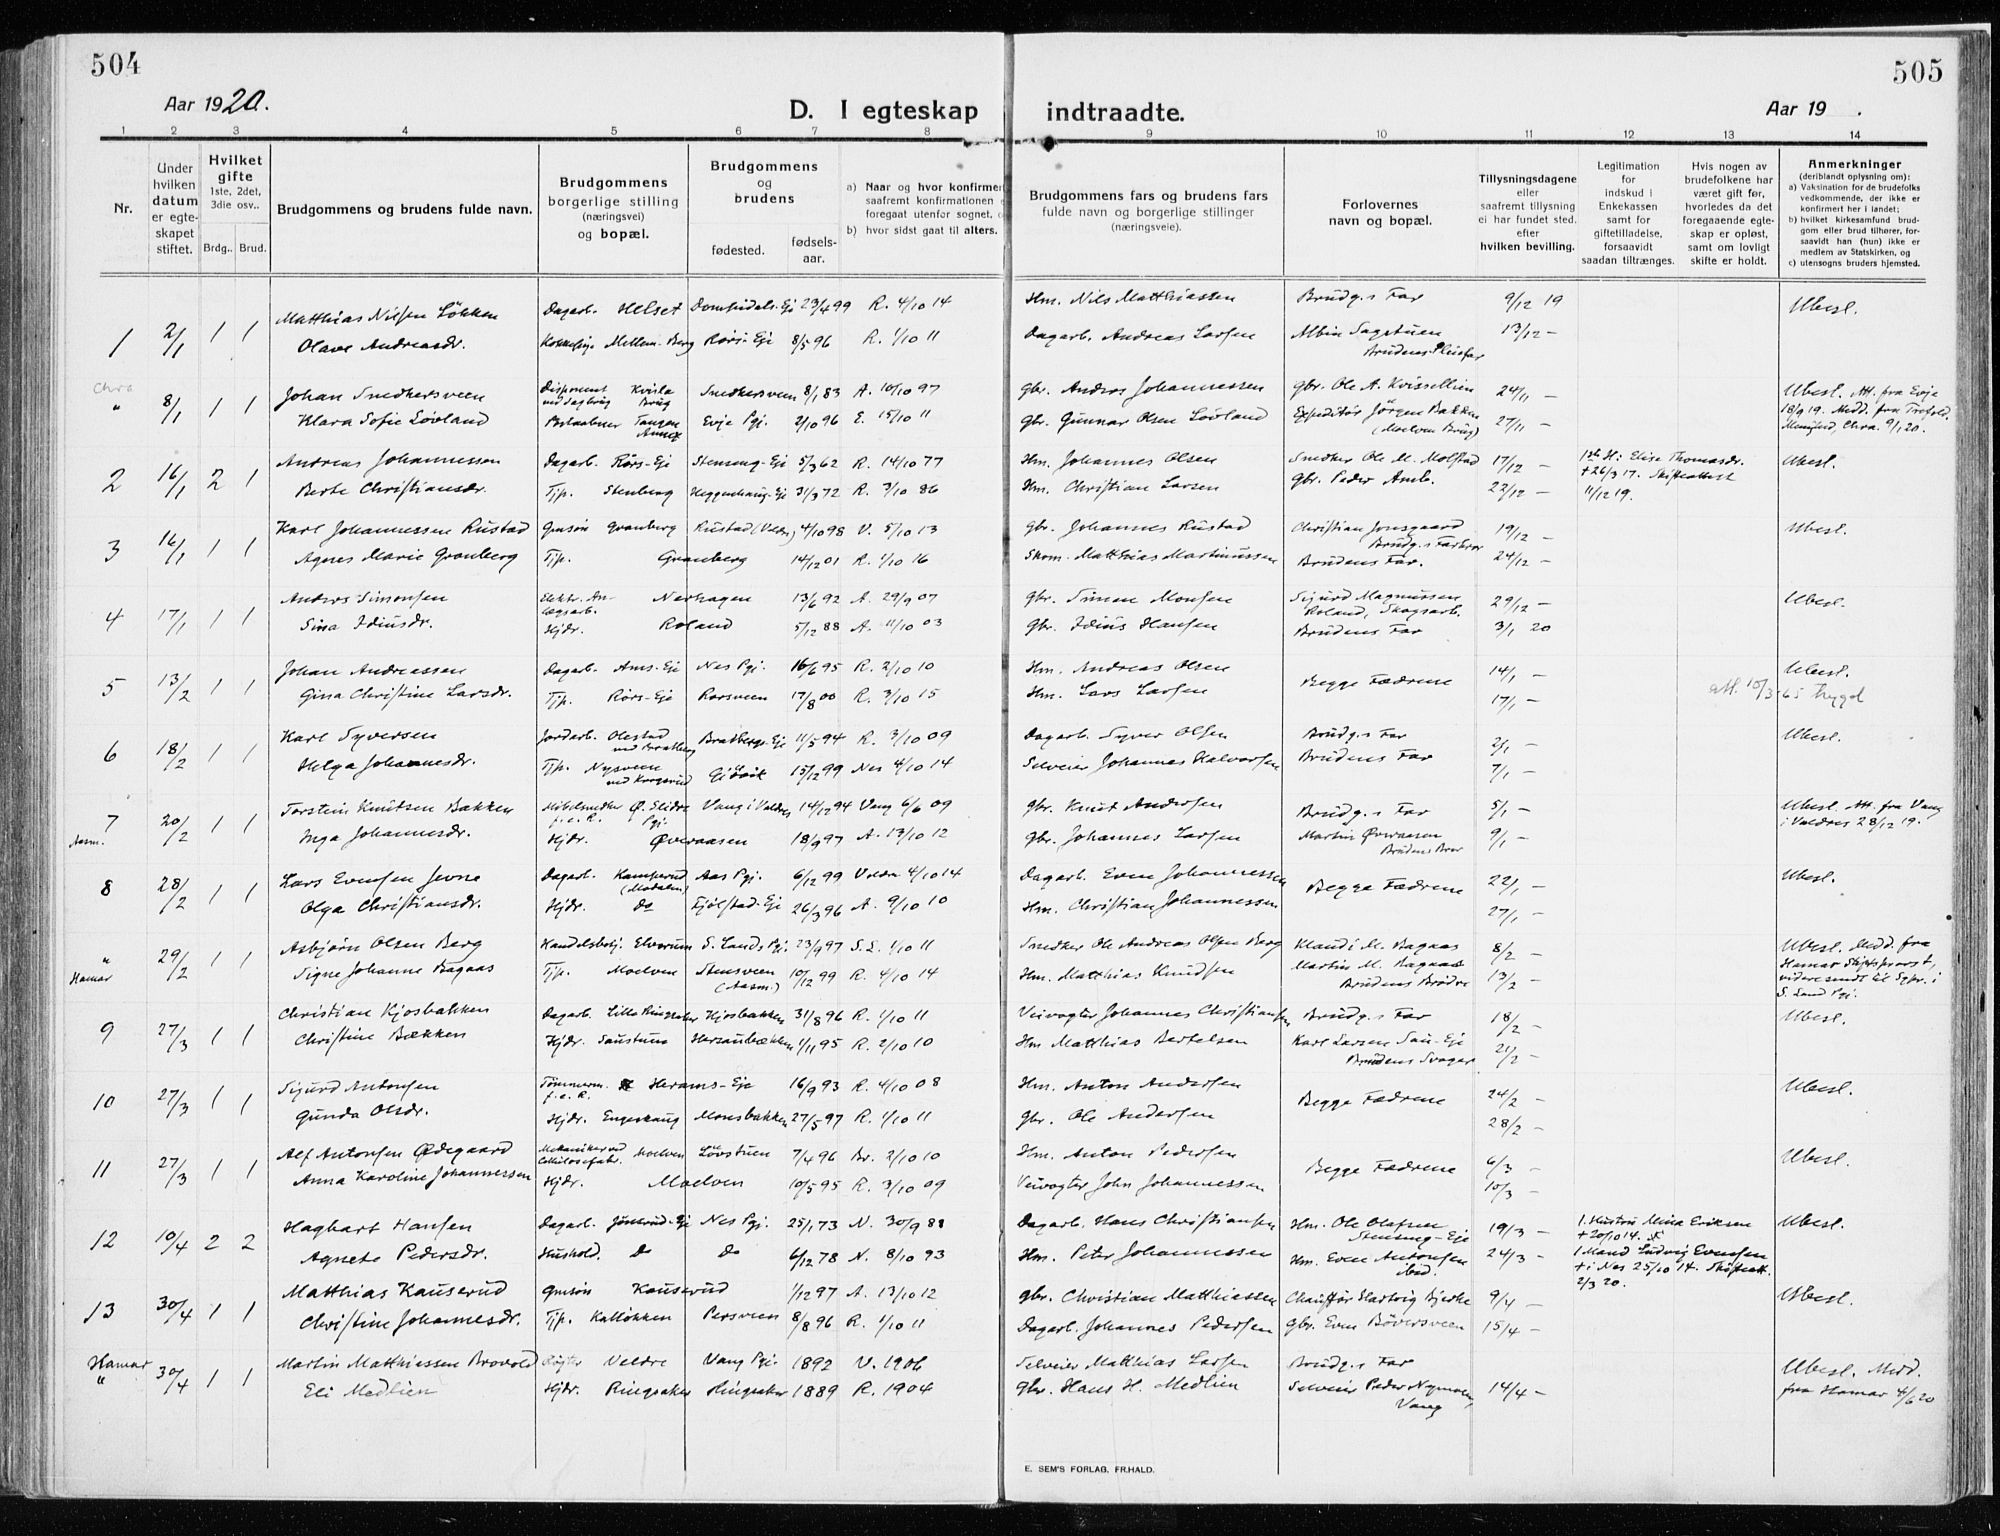 504
505
Aar 1920.
D. I egteskap indtraadte.
Aar 19 .
1 2 3 4 5 6 7 8 9 10 11 12 13 14
Nr.
Under hvilken datum er egteskapet stiftet.
Hvilket gifte 1ste, 2det, 3die osv..
Brdg.. Brud.
Brudgommens og brudens fulde navn.
Brudgommens borgerlige stilling (næringsvei) og bopæl.
Brudgommens og brudens
fødested. fødselsaar.
a) Naar og hvor konfirmer
saafremt konfirmationen
foregaat utenfor sognet,
b) hvor sidst gaat til alters.
Brudgommens fars og brudens fars
fulde navn og borgerlige stillinger
(næringsveie).
Forlovernes
navn og bopæl.
Tillysningsdagene
eller
saafremt tillysning
ei har fundet sted.
efter
hvilken bevilling.
Legitimation
for
indskud i
Enkekassen
samt for
giftetilladelse,
forsaavidt
saadan tiltrænges.
Hvis nogen av
brudefolkene har
været gift før,
hvorledes da det
foregaaende egte-
skap er opløst,
samt om lovligt
skifte er holdt.
Anmerkninger
(deriblandt oplysning om):
a) Vaksination for de brudefolks
vedkommende, der ikke er
konfirmert her i landet;
b) hvilket kirkesamfund brud-
gom eller brud tilhører, for-
saavidt han (hun) ikke er
medlem av Statskirken, og
c) utensogns bruders hjemsted.
1 2/1 1 1 Matthias Nilsen Løkken Dagarb. Helset 23/4 99 R. 4/10 14 Hm. Nils Matthiassen Brudg.s Far 9/12 19 Ubesl.
Olave Andreasdr. Mellem-Berg Rørs-Eje 8/5 96 R. 1/10 11 Dagarb. Andreas Larsen Albin Sagstuen 13/12 –
Brudens Pleiefar
Chra " 8/1 1 1 Johan Smedkersveen Disponent ved Sagbrug Kvisla Brug Smedkersveen 8/1 83 A. 10/10 97 gbr. Andreas Johannessen gbr. Ole A. Kvissellien 24/11 – Ubesl. Att. fra Evje
Klara Sofie Lövland Tangen Annex Evje Pgj. 2/10 96 E. 15/10 11 gbr. Gunnar Olsen Lövland Expeditör Jörgen Bakken (Moelven Brug) 27/11 – 18/9 19. Medd. fra Trefold. Menighed, Chra. 9/1 20.
2 16/1 2 1 Andreas Johannessen Dagarb. Rörs-Eje Stenseng-Eje 5/3 62 R. 14/10 77 Hm. Johannes Olsen Snedker Ole M. Molstad 17/12 – 1ste H: Elise Thomasdr. Ubesl.
Berte Christiansdr. Tjp. Stenberg Heggenhaug-Eje 31/3 72 R. 3/10 86 Hm. Christian Larsen gbr. Peder Amb. 22/12 – + 26/3 17. Skifteattest 11/12 19.
3 16/1 1 1 Karl Johannessen Rustad Gmsön Granberg Rustad (Veldre) 4/10 98 V. 5/10 13 gbr. Johannes Rustad Christian Jonsgaard Brudg.s Farbror 19/12 – Ubesl.
Agnes Marie Granberg Tjp. Granberg 14/12 01 R. 1/10 16 Skom. Matthias Martinussen Brudens Far. 24/12 –
4 17/1 1 1 Anders Simonsen Elektr. Anlægsarb. Nerhagen 13/6 92 A. 29/9 07 gbr. Simen Monsen Sigurd Magnussen Roland, Skogsarb. 29/12 – Ubesl.
Sina Idiusdr. Hjdr. Roland 5/12 88 A. 11/10 03 gbr. Idius Hansen Brudens Far 3/1 20
5 13/2 1 1 Johan Andreassen Dagarb. Ams-Eje Nes Pgj. 16/6 95 R. 2/10 10 Hm. Andreas Olsen Begge Fædrene 14/1 – Ubesl.
Gina Christine Larsdr. Tjp. Rörs-Eje Rorsveen 17/8 00 R. 3/10 15 Hm. Lars Larsen 17/1 – att. 10/3 65 trygd
6 18/2 1 1 Karl Syversen Jordarb. Olestad ved Bratberg Bratbergs-Eje 11/5 94 R. 3/10 09 Dagarb. Syver Olsen Brudg.s Far 2/1 – Ubesl.
Helga Johannesdr. Tjp. Nysveen Gjövik 15/12 99 Nes 4/10 14 Selveier Johannes Halvorsen Brudens Far 7/1 –
7 Aasm. 20/2 1 1 Torstein Knutsen Bakken Möbelsnedker f.e.R. Ø. Slidre Pgj. Vang i Valdres 14/12 94 Vang 6/6 09 gbr. Knut Andersen Brudg.s Far 5/1 – Ubesl. Att. fra Vang i Valdres 28/12 19.
Inga Johannesdr. Hjdr. Øveraasen 18/9 97 A. 13/10 12 gbr. Johannes Larsen Martin Øveraasen Brudens Bror 9/1 –
8 28/2 1 1 Lars Evensen Jevne Dagarb. Kamperud Aas Pgj. 6/12 99 Veldre 4/10 14 Dagarb. Even Johannessen Begge Fædrene 22/1 – Ubesl.
Olga Christiansdr. Hjdr. do Fjölstad-Eje 26/3 96 A. 9/10 10 Hm. Christian Johannessen 27/1 –
" Hamar 29/2 1 1 Asbjørn Olsen Berg Handelsbetj. Elverum S. Lands Pgj. 23/9 97 S.L. 1/10 11 Snedker Ole Andreas Olsen Berg Klaudi M. Bagaas 8/2 – Ubesl. Medd. fra
Signe Johanne Bagaas Tjp. Moelven Stensveen (Aasm.) 10/12 99 R. 4/10 14 Hm. Matthias Knudsen Martin M. Bagaas Brudens Brødre 13/2 – Hamar Stiftsprovst, videre sendt til Sgpr. i S. Land Pgj.
9 27/3 1 1 Christian Kjosbakken Dagarb. Lille Ringsaker Kjosbakken 31/8 96 R. 1/10 11 Veivogter Johannes Christiansen Brudg.s Far 18/2 – Ubesl.
Christine Bækken Hjdr. Saustum Hersaubækken 1/11 95 R. 2/10 10 Hm Matthias Bertelsen Karl Larsen Sau-Eje Brudens Svoger 21/2 –
10 27/3 1 1 Sigurd Antonsen Tömmerm. f.e.R. Herams-Eje 16/9 93 R. 4/10 08 Hm. Anton Andersen Begge Fædrene 24/2 – Ubesl.
Gunda Olsdr. Hjdr. Engeskaug Monsbakken 27/5 97 R. 1/10 11 gbr. Ole Andersen 28/2 –
11 27/3 1 1 Alf Antonsen Ødegaard Mekaniker ved Cellulosefabr. Moelven Lövstuen 7/4 96 Br. 2/10 10 Hm. Anton Pedersen Begge Fædrene 6/3 – Ubesl.
Anna Karoline Johannessen Hjdr. Moelven 10/5 95 R. 3/10 09 Veivogter John Johannessen 10/3 –
12 10/4 2 2 Hagbart Hansen Dagarb. Jönsrud-Eje Nes Pgj. 25/1 73 N. 30/9 88 Dagarb. Hans Christiansen Hm. Ole Olafsen Stenseng-Eje 19/3 – 1. Hustru Mina Eriksen + 20/10 14. Ubesl.
Agnete Pedersdr. Hushold. do do 6/12 78 N. 8/10 93 Hm. Peter Johannessen Hm. Even Antonsen ibid. 24/3 – 1 Mand Ludvig Evensen + i Nes 25/10 14. Skifteatt. 2/3 20.
13 30/4 1 1 Matthias Kauserud Gmsön Kauserud 1/12 97 A. 13/10 12 gbr. Christian Matthiassen Chauffør Hartvig Bjerke 9/4 – Ubesl.
Christine Johannesdr. Tjp. Kallökken Persveen 8/8 96 R. 1/10 11 Dagarb. Johannes Pedersen gbr. Even Böversveen 15/4 –
Hamar " 30/4 1 1 Martin Matthiessen Brovold Veldre Vang Pgj. 1892 V. 1906 Selveier Matthias Larsen Brudg.s Far Ubesl. Medd.
Eli Medlien Hjdr. Ringsaker Ringsaker 1889 R. 1904 gbr. Hans H. Medlien Selveier Peder Nymoen, Vang 14/4 – fra Hamar 4/6 20
E. SEM'S FORLAG, FR.HALD.